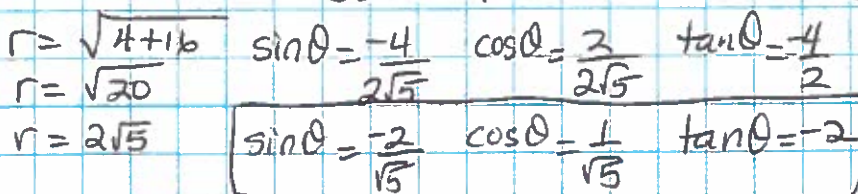 r = √4+16 sinθ = -4/2√5 cosθ = 2/2√5 tanθ = -4/2
r = √20
r = 2√5 sinθ = -2/√5 cosθ = 1/√5 tanθ = -2